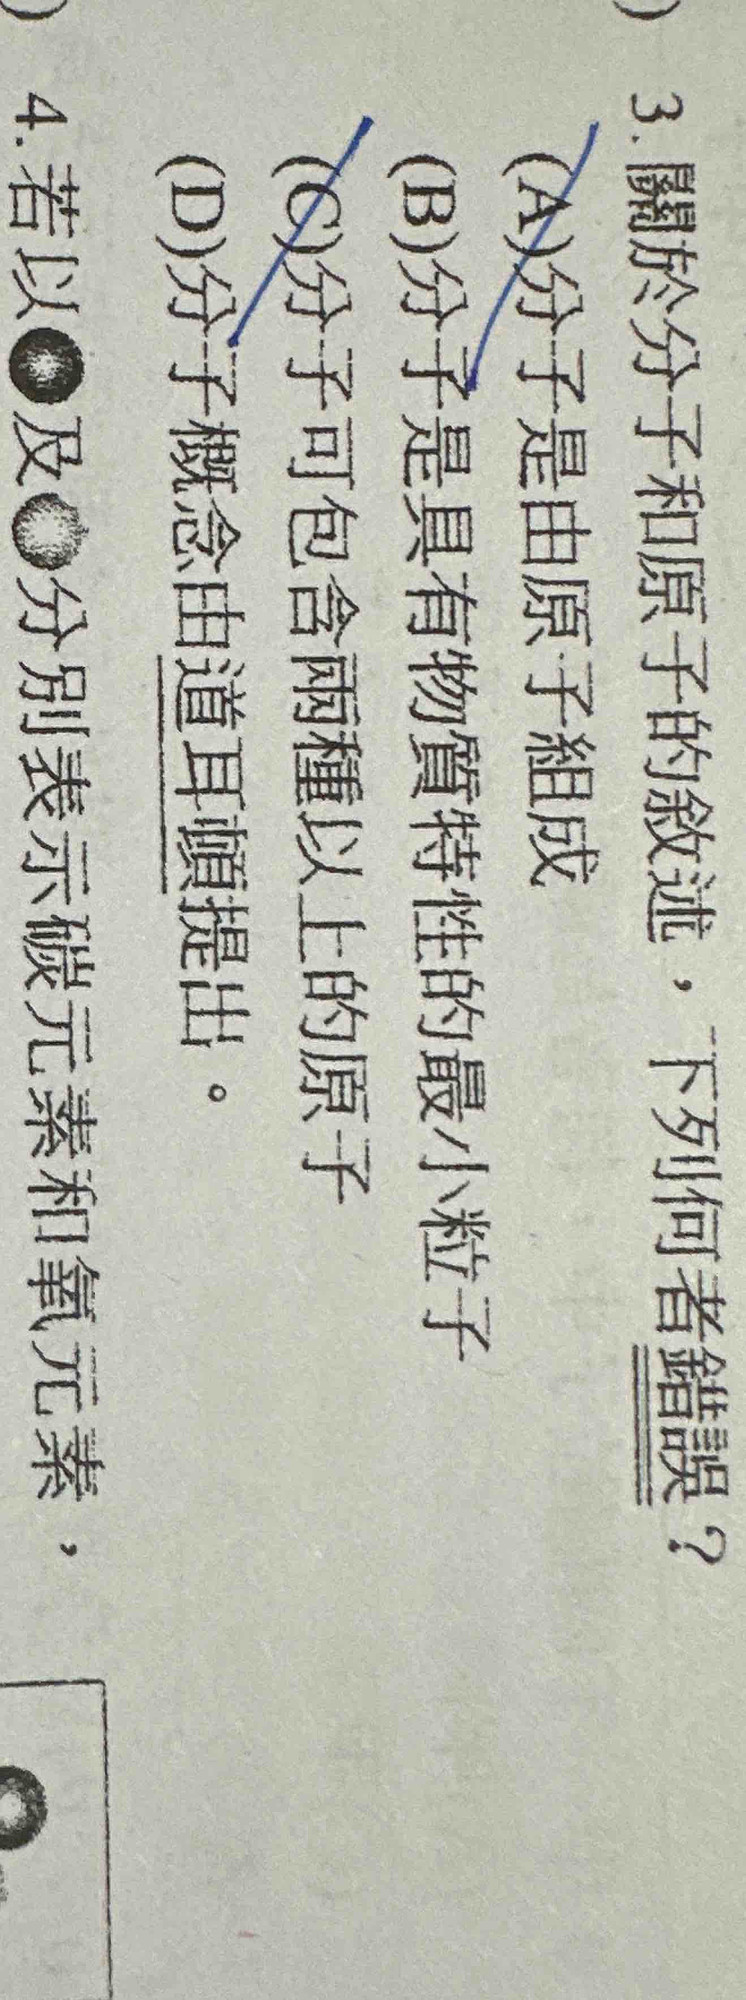 3.關於分子和原子的敘述，下列何者錯誤？
(A)分子是由原子組成
(B)分子是具有物質特性的最小粒子
(C)分子可包含兩種以上的原子
(D)分子概念由道耳頓提出。
4.若以●及●分別表示碳元素和氧元素，